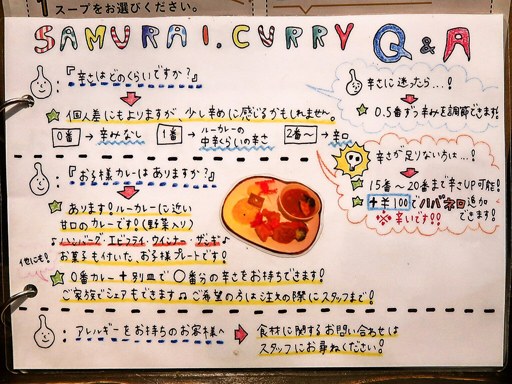 スープをお選びください。
SAMURAI.CURRY Q&A
『辛さはどのくらいですか?』
☆ 個人差にもよりますが、少し辛めに感じるかもしれません。
0番 → 辛みなし 1番 → ルーカレーの中辛くらいの辛さ 2番〜 → 辛口
辛さに迷ったら…!
☆ 0.5番ずつ辛みを調節できます!
辛さが足りない方は…!
☆ 15番〜20番まで辛さUP可能!
☆ +¥100でハバネロ追加できます!
※辛いです!!
『お子様カレーはありますか?』
☆ あります!ルーカレーに近い
甘口のカレーです!(野菜入り)
♪ハンバーグ・エビフライ・ウインナー・ザンギ♪
他にも! お菓子も付いた、お子様プレートです!
☆ 0番カレー+別皿で〇番分の辛さをお持ちできます!
ご家族でシェアもできます♪ご希望の方は注文の際にスタッフまで!
アレルギーをお持ちのお客様へ → 食材に関するお問い合わせは
スタッフにお尋ねください!